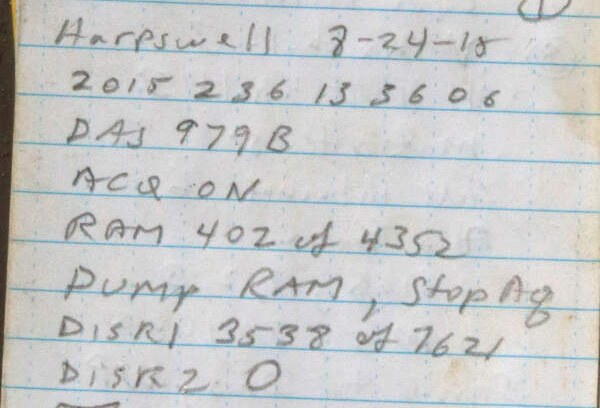 ①
Harpswell 8-24-15
2015 236 13 36 06
DAS 979B
ACQ ON
RAM 402 of 4352
Dump RAM, Stop Aq
Disk1 3538 of 7621
Disk2 0